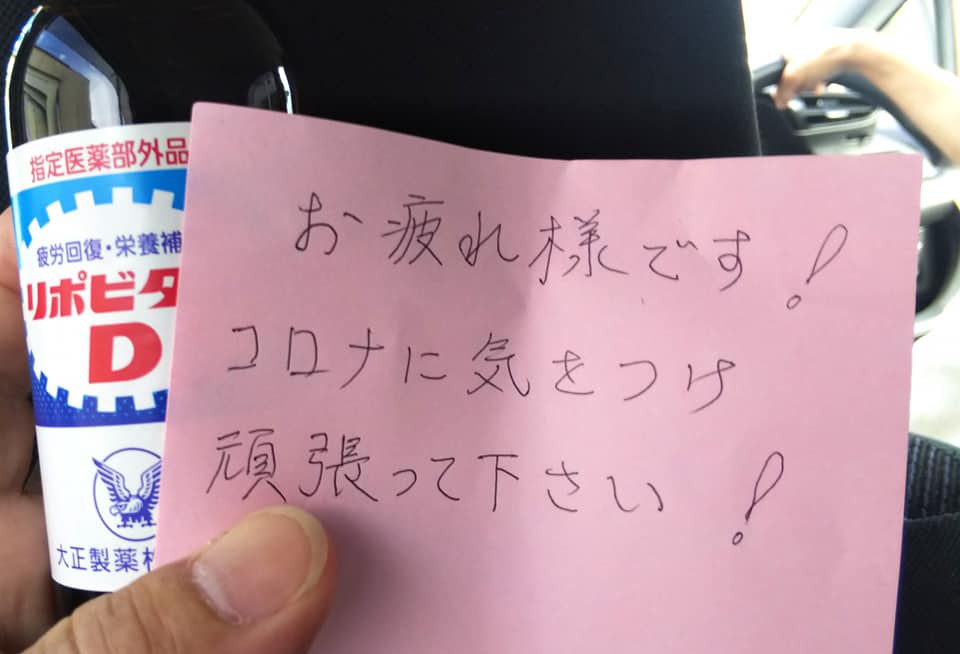 指定医薬部外品
疲労回復・栄養補
リポビタ
D
大正製薬株
お疲れ様です!
コロナに気をつけ
頑張って下さい!